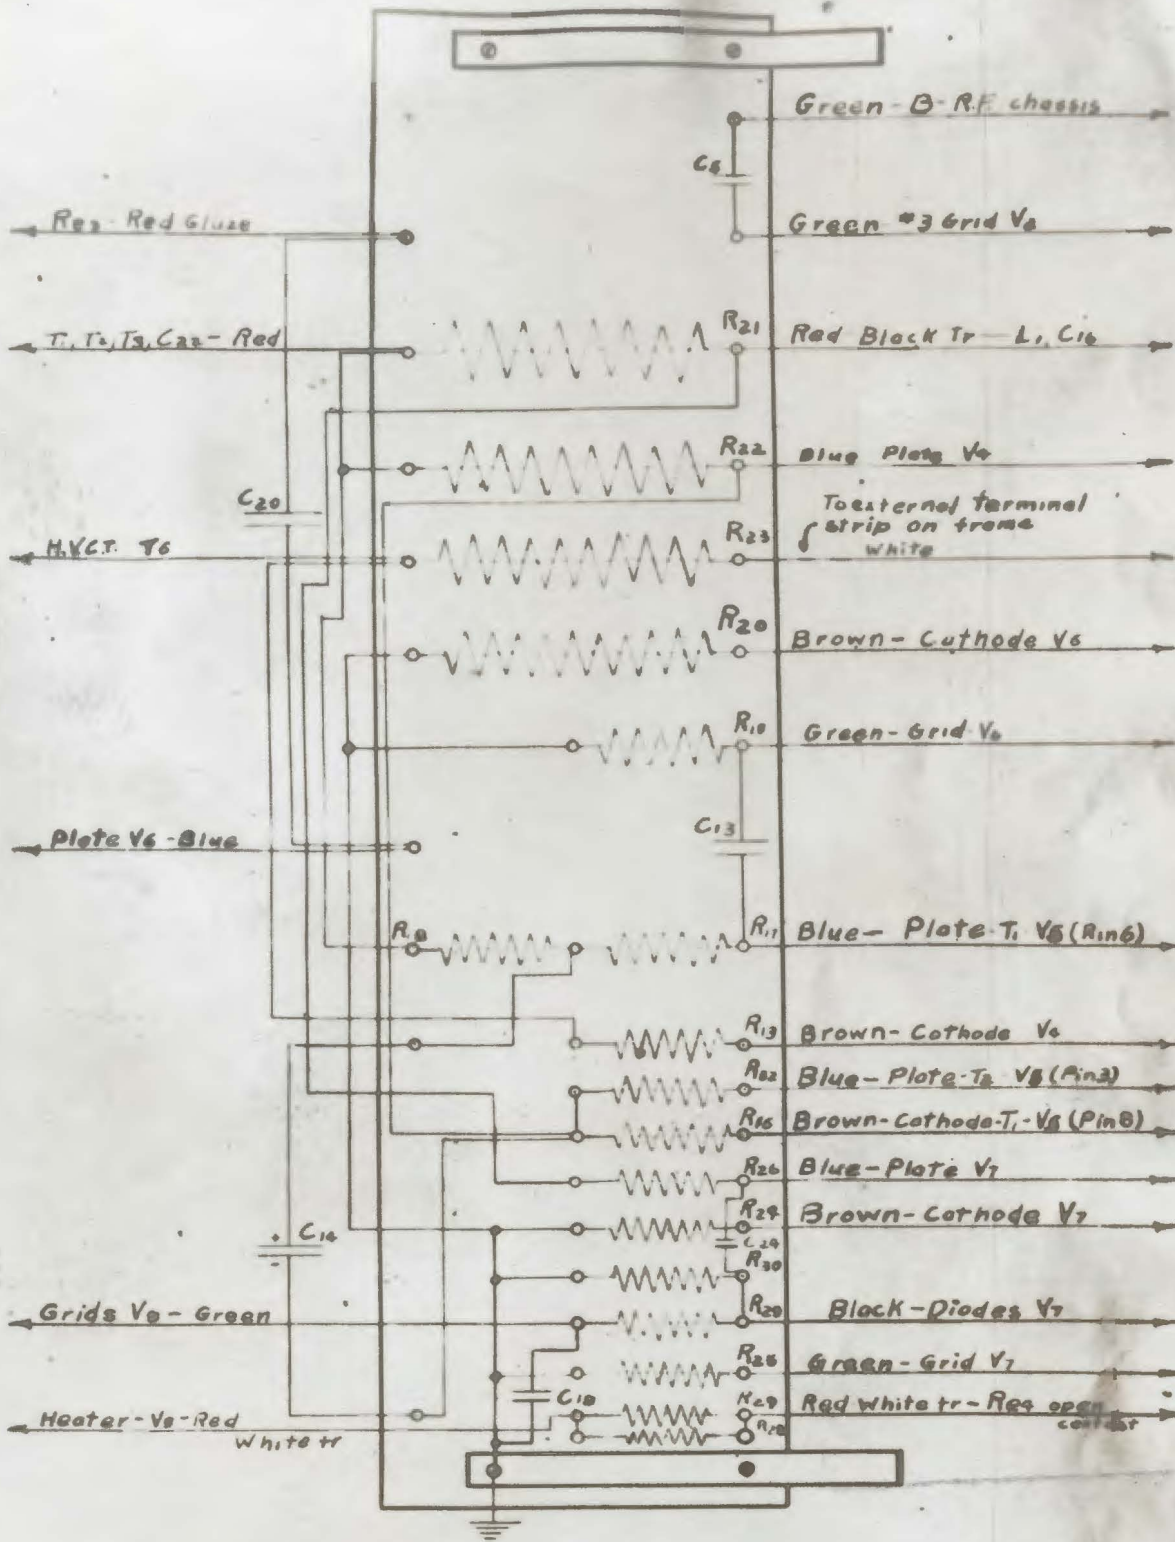 Green - B - R.F. chassis
C5
Re3 - Red Glaze
Green #3 Grid V8
T1, T2, T3, C22 - Red
R21
Red Black Tr - L1, C16
R22
Blue Plate V4
C20
To external terminal
strip on frame
white
H.V.C.T. T6
R23
R20
Brown - Cathode V6
R19
Green - Grid V6
C13
Plate V6 - Blue
R18
R17
Blue - Plate - T1 V5 (Pin6)
R13
Brown - Cathode V4
R32
Blue - Plate - T2 V5 (Pin3)
R16
Brown - Cathode - T1 - V5 (Pin8)
R26
Blue - Plate V7
R24
Brown - Cathode V7
C14
+
-
C24
R30
Grids V8 - Green
R20
Black - Diodes V7
R25
Green - Grid V7
C18
R29
Red White tr - Re4 open
contact
Heater - V8 - Red
White tr
R28